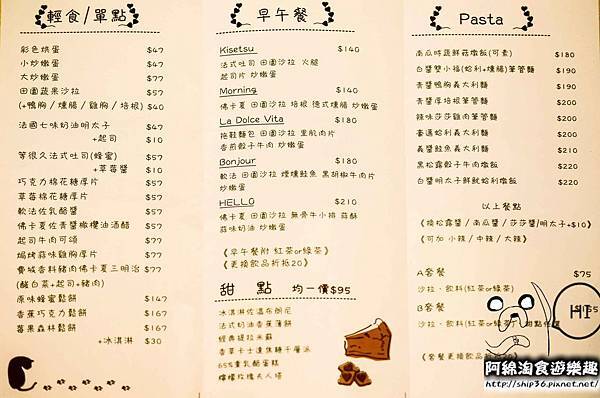 輕食/單點
彩色烘蛋 $47
小炒嫩蛋 $47
大炒嫩蛋 $77
田園蔬果沙拉 $57
(+鴨胸/燻腸/雞胸/培根) $40
法國七味奶油明太子 $47
+起司 $10
等很久法式吐司(蜂蜜) $57
+草莓醬 $10
巧克力棉花糖厚片 $57
草莓棉花糖厚片 $57
軟法佐乳酪醬 $57
佛卡夏佐青醬橄欖油酒醋 $57
起司牛肉可頌 $77
焗烤蒜味雞胸厚片 $77
費城香料豬肉佛卡夏三明治 $77
(酸白菜+起司+豬肉)
原味蜂蜜鬆餅 $147
香蕉巧克力鬆餅 $167
莓果森林鬆餅 $167
+冰淇淋 $30
早午餐
Kisetsu $140
法式吐司 田園沙拉 火腿
起司片 炒嫩蛋
Morning $140
佛卡夏 田園沙拉 培根 德式燻腸 炒嫩蛋
La Dolce Vita $180
拖鞋麵包 田園沙拉 里肌肉片
香煎骰子牛肉 炒嫩蛋
Bonjour $180
軟法 田園沙拉 煙燻鮭魚 黑胡椒牛肉片
炒嫩蛋
HELLO $210
佛卡夏 田園沙拉 無骨牛小排 蒜酥
蒜味奶油 炒嫩蛋
《早午餐附 紅茶or綠茶》
《更換飲品折抵20》
甜 點 均一價$95
冰淇淋佐溫布朗尼
法式奶油香蕉薄餅
經典提拉米蘇
香草卡士達焦糖千層派
65%重乳酪蛋糕
檸檬玫瑰夫人塔
Pasta
南瓜時蔬鮮菇燉飯(可素) $180
白醬雙小福(蛤利+燻腸)筆管麵 $190
青醬鴨胸義大利麵 $190
青醬厚培根筆管麵 $200
辣味莎莎雞白筆管麵 $200
臺邁蛤利義大利麵 $200
義醬鮭魚義大利麵 $200
黑松露骰子牛肉燉飯 $220
白醬明太子鮮魷蛤利燉飯 $220
以上餐點
《換松露醬/南瓜醬/莎莎醬/明太子+$10》
《可加 小辣/中辣/大辣》
A套餐 $75
沙拉、飲料(紅茶or綠茶)
B套餐
沙拉、飲料(紅茶or綠茶)
《套餐更換飲品折抵20》
HI
阿綿淘食遊樂趣
http://ship36.pixnet.net/